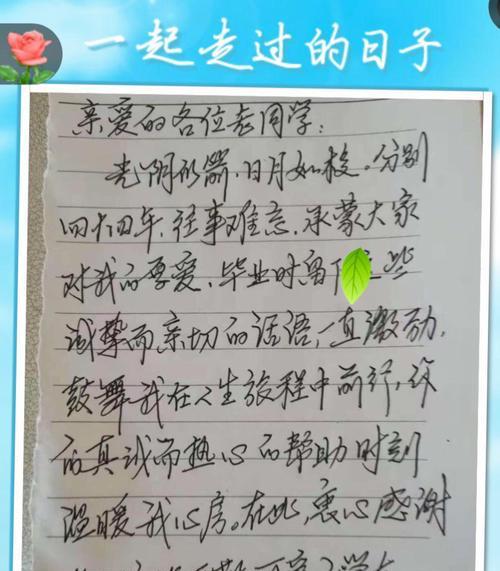 一起走过的日子
亲爱的各位老同学：
光阴似箭，日月如梭。分别
四十四年，往事难忘，承蒙大家
对我的厚爱，毕业时留下这些
诚挚而亲切的话语，一直激励，
鼓舞我在人生旅程中前行，
的真诚而热心的帮助时刻
温暖我心房。在此，衷心感谢